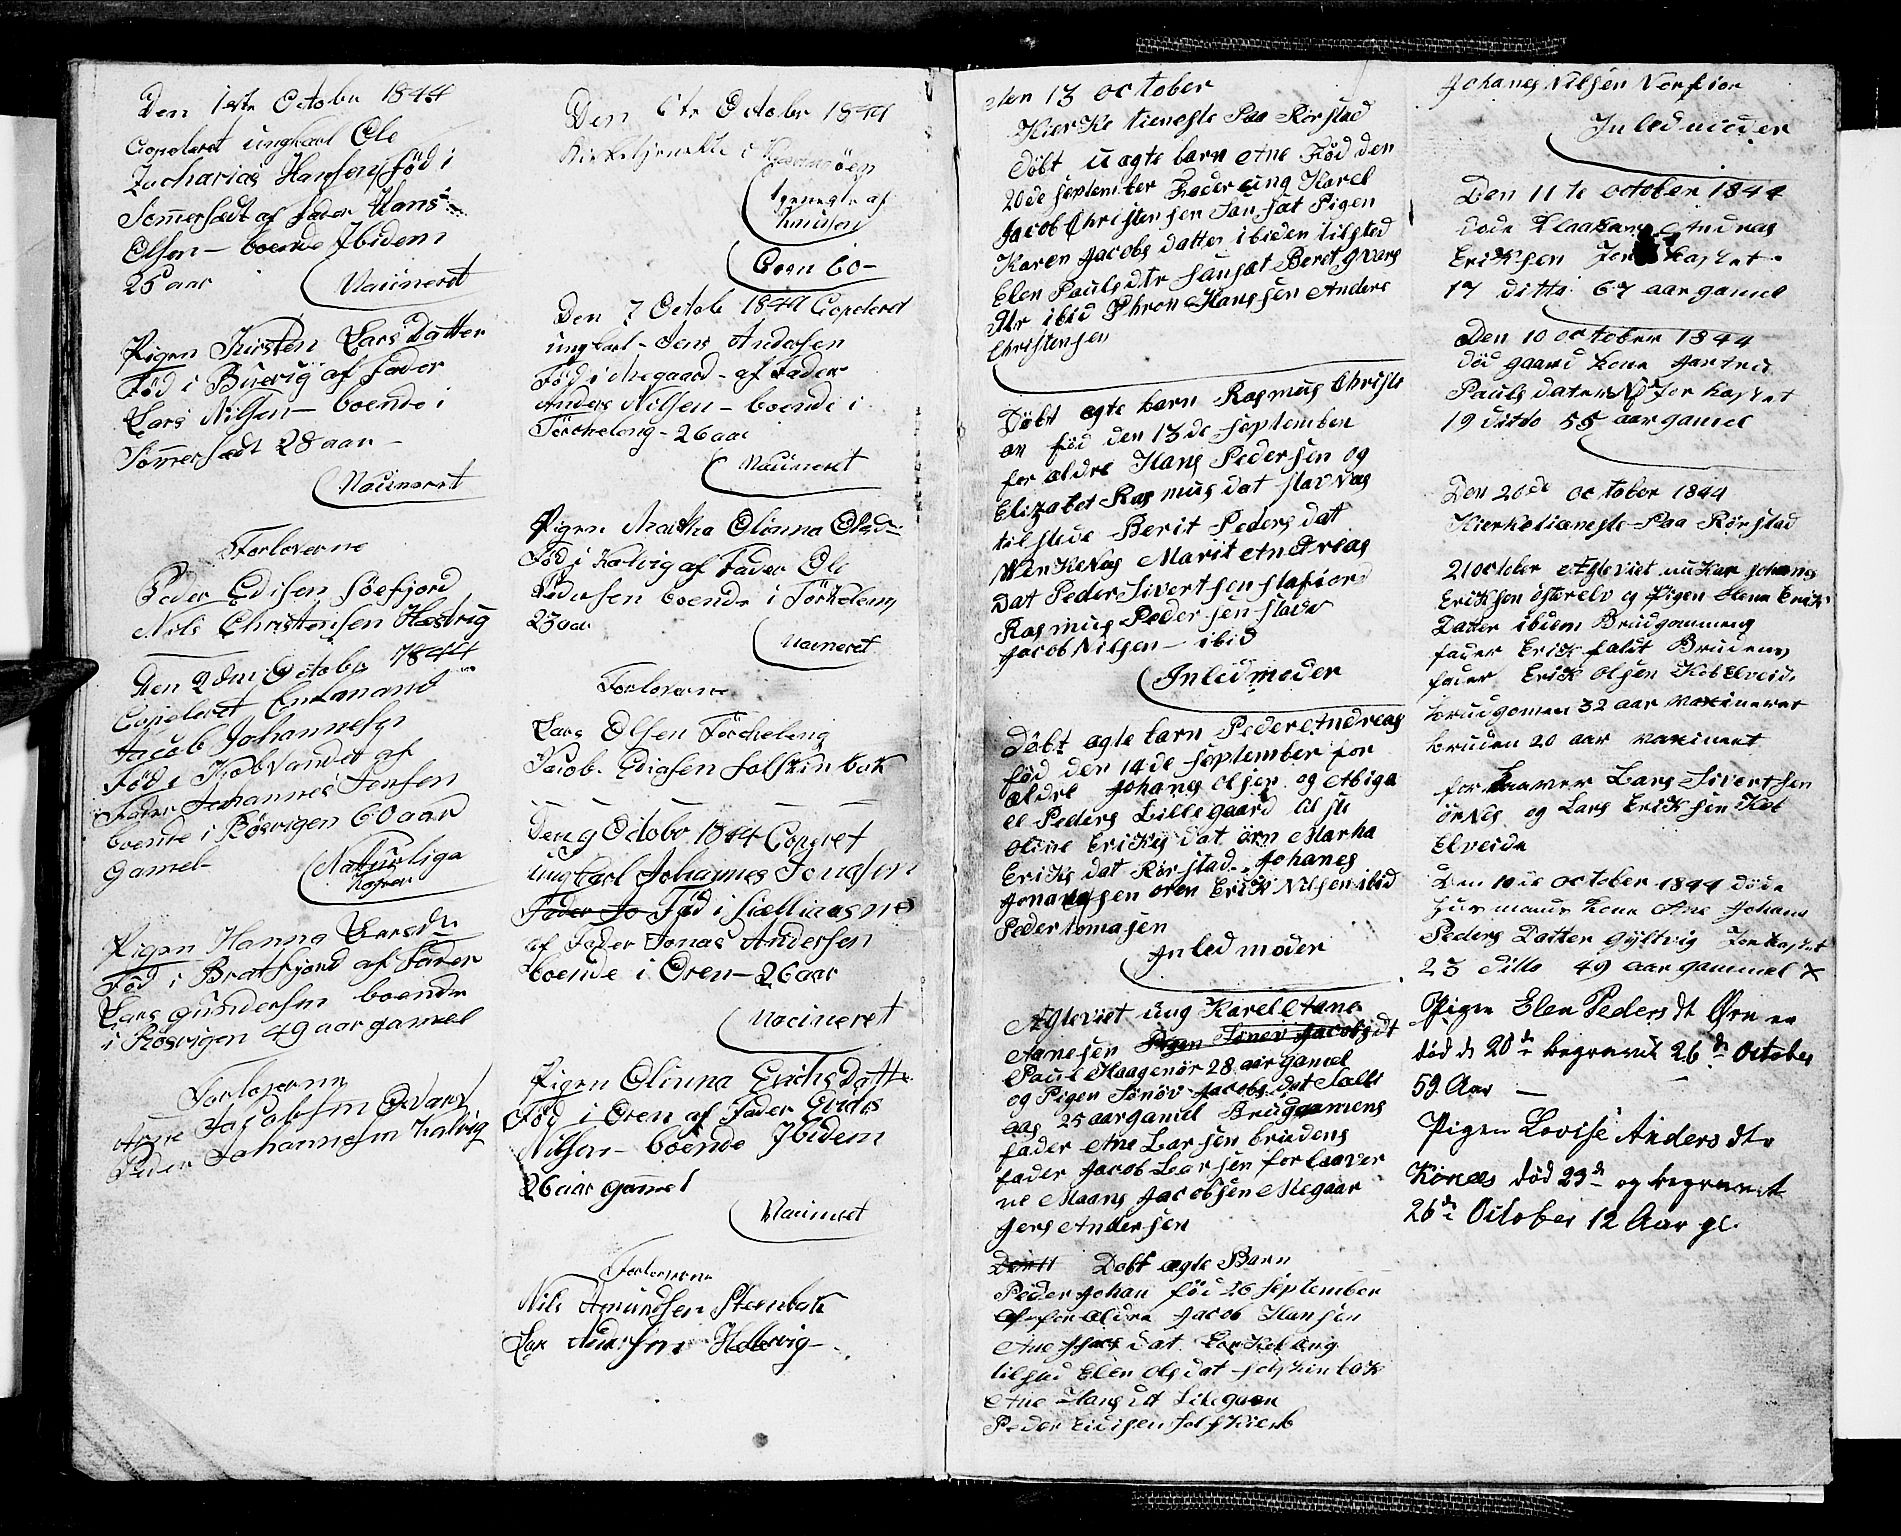 Den 1ste October 1844
Copoleret ungkarl Ole
Zacharias Hansen föd i
Somersædt af fader Hans
Olsen - boende Ibidem
25 aar
Vacineret
Pigen Kirsten Lars Datter
Föd i Buevig af fader
Lars Nilsen - boende i
Somersædt 28 aar -
Vacineret
Forloverne
Peder Edisen Söefjord
Nils Christensen Hæstvig
Den 2den October 1844
Copoleret Enkemand
Jacob Johannesen
Föd i Kobvandet af
Fader Johannes Jensen
boende i Rösvigen 60 aar
gamel
Naturliga
Kopper
Pigen Hanna Larsdtr
Föd i Bratfjord af fader
Lars gundersen boende
i Rösvigen 49 aar gamel
Forloverne
Arne Jacobsen Qvarv
Peder Johannesen Kalvig
Den 6te October 1844
Kirketjeneste i
tjeneste af
Knudsen
Den 7 Octob 1844 Copoleret
ungkarl - Jens Andersen
Föd i Megaard - af Fader
Anders Nilsen - boende i
Törckeleng - 26 aar
Vacineret
Pigen Martha Olianna Olsd
Föd i Kalvig af Fader Ole
Pedersen boende i Törkeleng
23 aar
Vacineret
Forloverne
Lars Olsen Törckeleng
Jacob Ediasen Solskinbak
Den 9 October 1844 Coporet
ungkarl Johannes Jonasen
Fader Jo Föd i
af Fader Jonas Andersen
boende i Ören - 26 aar
Vacineret
Pigen Olianna Erichs Datter
Föd i Ören af Fader Erichs
Nilsen - boende Ibidem
26 aar gamel
Vacineret
Forloverne
Nils Amundsen Steenbak
Lar Andersen Hellarvig
Den 13 october
Kierke tieneste Paa Rörstad
Döbt uagte barn Ane Föd den
20de september Fader ung Karel
Jacob Christensen Sansat Pigen
Karen Jacobs datter ibiden tilsted
Elen Paulsdtr sansæt Beret gvars
dtr ibid Thron Hanssen Anders
Christensen
Döbt ægte barn Rasmus Christi
an föd den 13de september
for ældre Hans Pedersen og
Elizabet Rasmus dat slavnas
tilstede Berit Peders dat
Wenkenas Marit Andreas
Dat Peder Sivertsen slafiord
Rasmus Pedersen slavv
Jacob Nilsen - ibid
Inled moder
Döbt ægte barn Peder Andreas
föd den 14de september for
ældre Johans Olsen og Abiga
el Peders Lillegaard til ste
oline Ericks dat örn Marha
Ericks dat Rörstad - Johanes
Jonassen ören Erick Nilsen ibid
Peder tomasen
Inled moder
Agteviet ung Karel Arne
Arnesen Pigen Sönev Jacobsdt
Paul Haagenör 28 aar gamel
og Pigen Sönöv Jacobs dat
aas 25 aar gamel Brudgamens
fader Ane Larsen brudens
fader Jacob Larsen for laaver
ne Maans Jacobsen Megaar
Jers Andersen
Döbt ægte Barn
Peder Johan föd 26 september
for ældre Jacob Hansen
Ane dat torkelæng
tilstad Elen Ols dat solskinbak
Ane Hans dt Lilegaen
Peder Eidisen
Johanes Nilsen Nörfior
Inled moder
Den 11te october 1844
döde Andreas
Ericksen Jord kastet
17 ditto 67 aar gamel
Den 10 october 1844
död gaard kone Jartru
Pauls dater Jor kastet
19 ditto 55 aar gamel
Den 20de october 1844
Kierketieneste Paa Rörstad
21 october Agteviet Johans
Ericksen österelv og Pigen Elena Erick
Datter ibiem Brudgommens
fader Erick faldt Brudens
fader Erick Olsen Kobelveid
brudgomen 32 aar vaxineret
bruden 20 aar vaxinert
for laaver Lars Sivertsen
örnes og Lars Ericksen Kob
Elveide
Den 10de october 1844 döde
husmands kone Ane Johana
Peders Datter gyltvig Jorkastet
23 ditto 49 aar gammel X
Pigen Elen Peders dt Øren er
död d 20de begravet 26de October
59 Aar —
Pigen Lovise Anders dtr
Könæs död 23de og begravet
26de October 12 Aar gl.